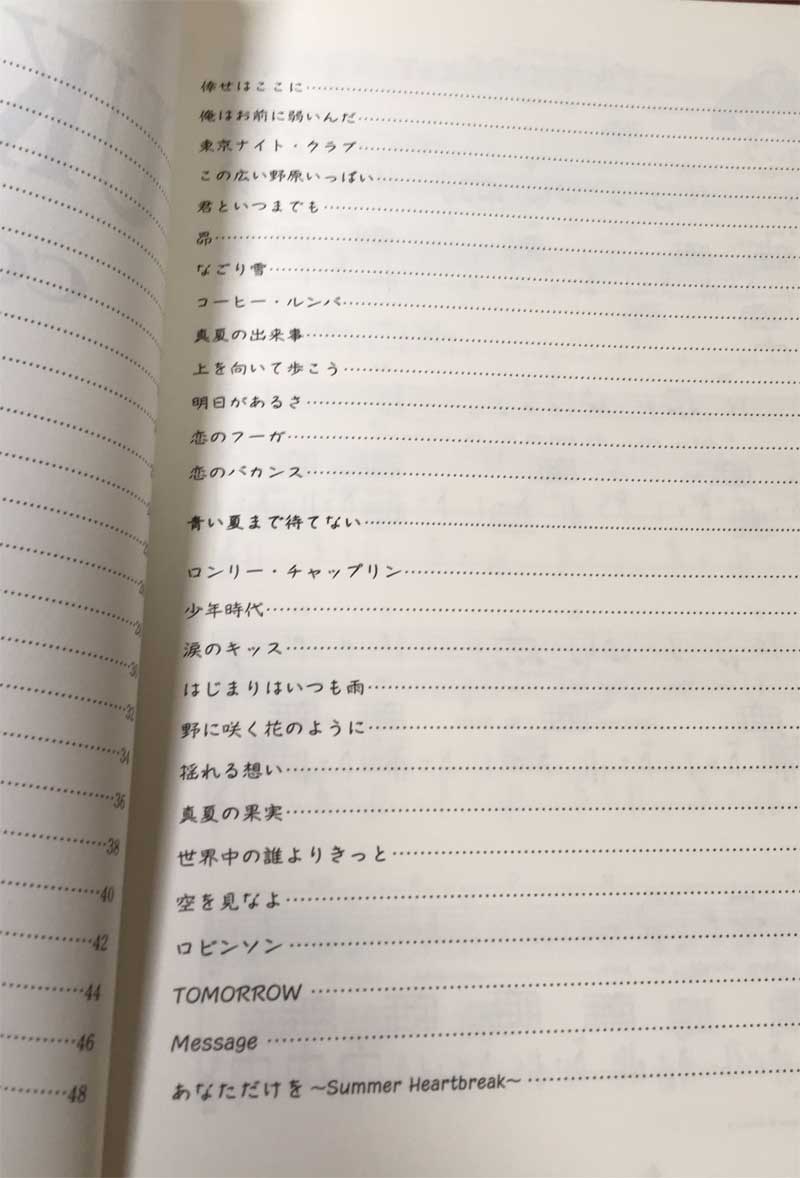 倖せはここに
俺はお前に弱いんだ
東京ナイト・クラブ
この広い野原いっぱい
君といつまでも
昴
なごり雪
コーヒー・ルンバ
真夏の出来事
上を向いて歩こう
明日があるさ
恋のフーガ
恋のバカンス
青い夏まで待てない
ロンリー・チャップリン
少年時代
涙のキッス
はじまりはいつも雨
野に咲く花のように
揺れる想い
真夏の果実
世界中の誰よりきっと
空を見なよ
ロビンソン
TOMORROW
Message
あなただけを ~Summer Heartbreak~
30
32
34
36
38
40
42
44
46
48